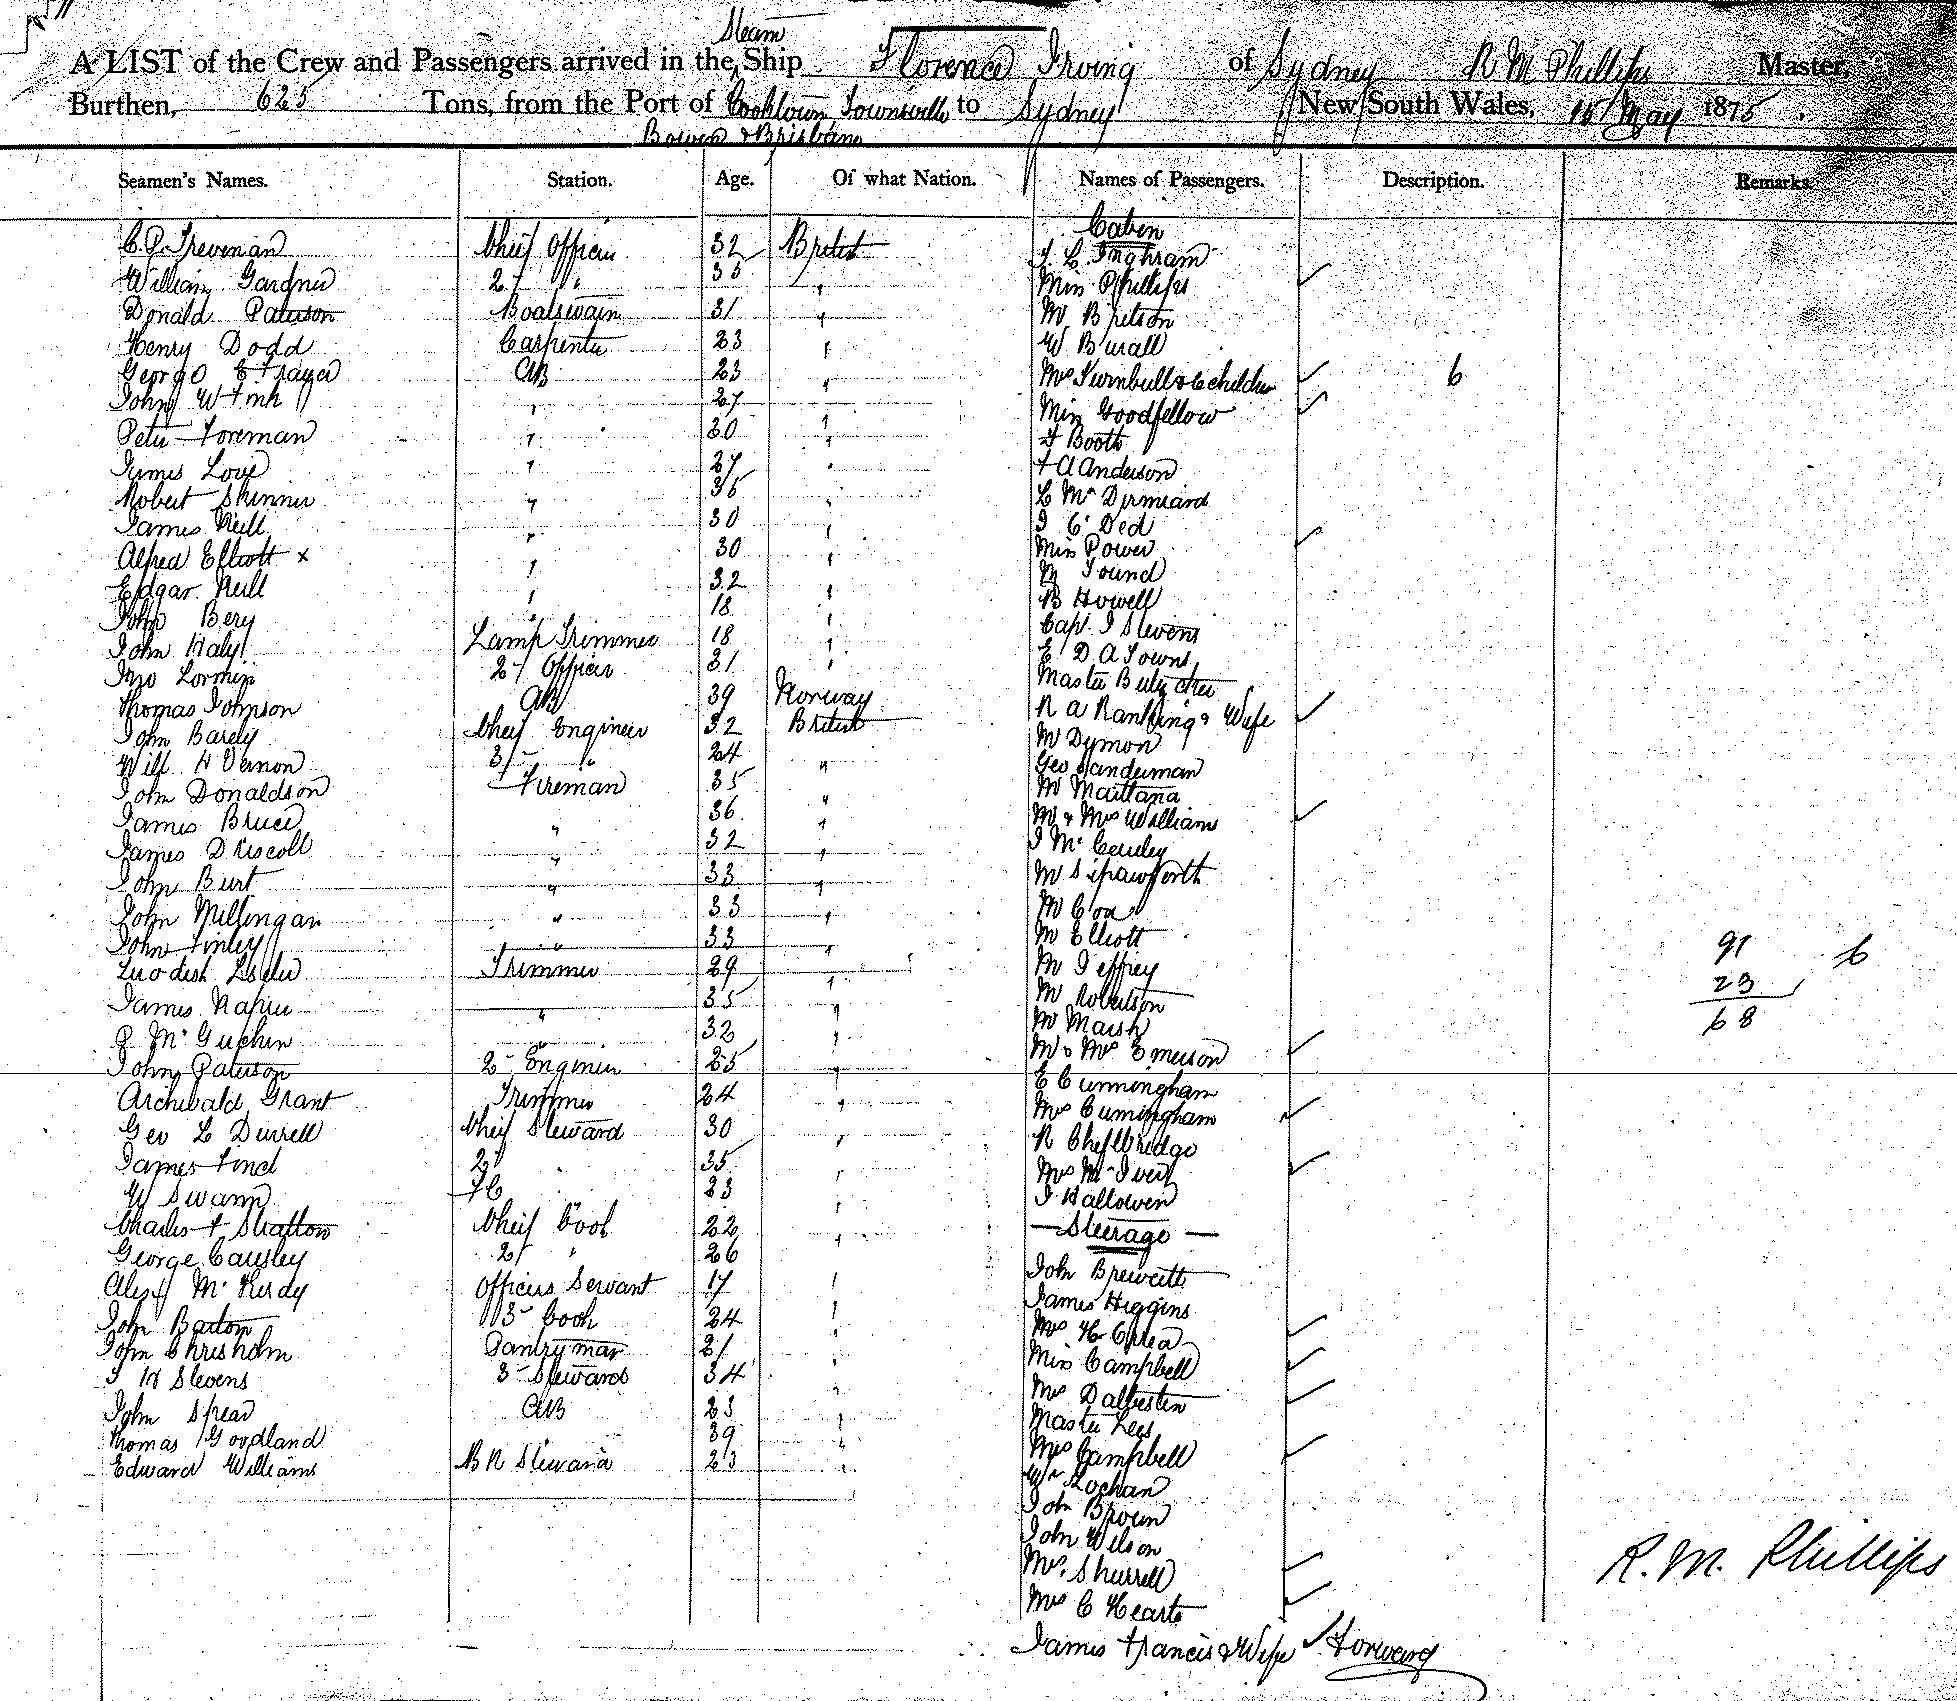 Steam
A LIST of the Crew and Passengers arrived in the Ship Florence Irving of Sydney R M Phillips Master,
Burthen, 625 Tons, from the Port of Cooktown Townsville to Sydney New South Wales, 15 May 1875
Bowen & Brisbane
Seamen's Names. Station. Age. Of what Nation. Names of Passengers. Description. Remarks.
Cabin
C. P. Trevenan Cheif Officer 32 British
William Gardner 2 " 33 "
Donald Paterson Boatswain 31 "
Henry Dodd Carpenter 23 "
George AB 23 "
John W Fink " 27 "
Peter Foreman " 30 "
James Love " 27 "
Robert Skinner " 35 "
James Neill " 30 "
Alfred Elliott x " 30 "
Edgar Neill " 32 "
John Bery " 18 "
John Haly Lamp Trimmer 18 "
Jno 2 Officer 31 "
Thomas Johnson AB 39 Norway
John Barely Cheif Engineer 32 British
Will H Vernon 3 " 24 "
John Donaldson Fireman 35 "
James Bruce " 36 "
James Driscoll " 32 "
John Burt " 33 "
John Millingan " 33 "
John Finley " 33 "
Trimmer 29 "
James Napier " 35 "
P Mc " 32 "
John Paterson 2 Engineer 25 "
Archibald Grant Trimmer 24 "
Geo L Durrell Cheif Steward 30 "
James Find 2 " 35 "
W Swann FC 23 "
Charles F Stratton Cheif Cook 22 "
George Causley 2 " 26 "
Alex Mc Officers Servant 17 "
John Barton 3 Cook 24 "
John Chrisholm Pantryman 21 "
J W Stevens 3 Steward 34 "
John Spear AB 23 "
Thomas Goodland 39 "
Edward Williams B R Steward 23 "
J. L. Inghram
Miss Phillips
M Bitson
W Burall
Mrs Turnbull & 6 children 6
Miss Goodfellow
F Booth
F A Anderson
L Mc
J C Ded
Miss Power
M Tound
B Howell
Cap. J Stevens
E D A Towns
Master Butcher
R A Ranking & Wife
M Dymon
Geo Sanderman
M Maitland
Mr & Mrs William
J Mc Cauley
M Sipawforth
M Cox
M Elliott
M Jeffrey
M Robertson
M Marsh
Mr & Mrs Emerson
E Cunningham
Mrs Cumingham
R
Mrs Mc
J Hallowen
Steerage
John
James Higgins
Mrs H
Miss Campbell
Mrs Dalbestin
Master Lees
Mrs Campbell
Wm Lochan
John Brown
John Wilson
Mrs. Shurrell
Mrs C Hearts
James Francis & Wife Forward
91 6
23
68
R. M. Phillips